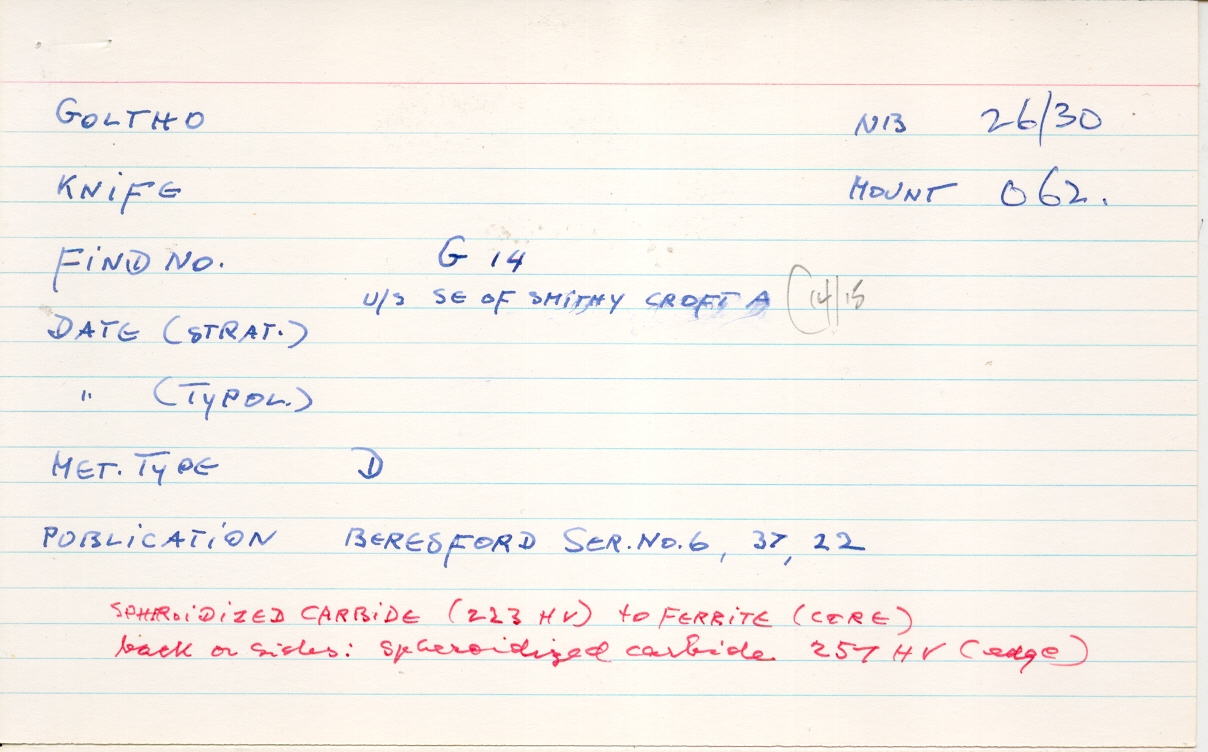 GOLTHO NB 26/30
KNiFE MOUNT 062.
FiND NO. G 14
U/S SE OF SMiTHY CROFT A (14/15
DATE (STRAT.)
" (TYPOL.)
MET. TYPE D
PUBLiCATiON BERESFORD SER. NO. 6, 37, 22
SPHROiDiZED CARBiDE (223 HV) to FERRiTE (CORE)
back or sides: spheroidized carbide 257 HV (edge)